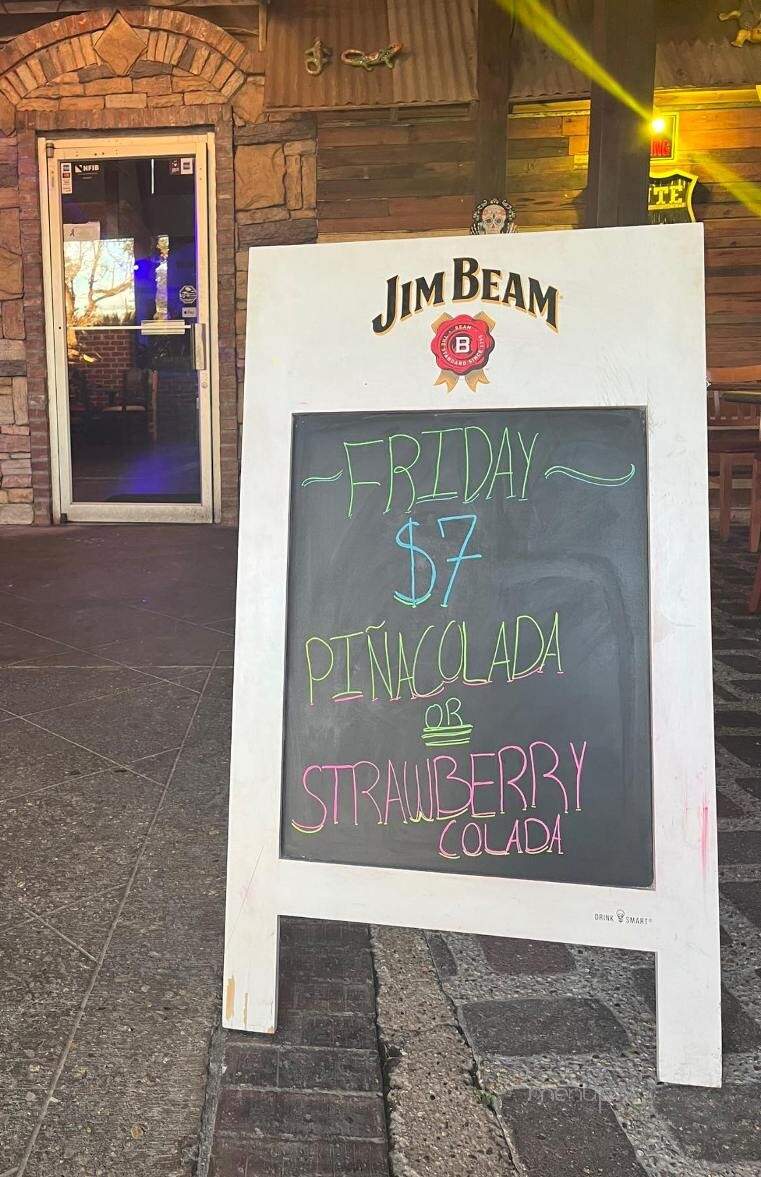 NFIB
JIM BEAM
B
~FRIDAY~
$7
PIÑACOLADA
OR
STRAWBERRY
COLADA
DRINK SMART®